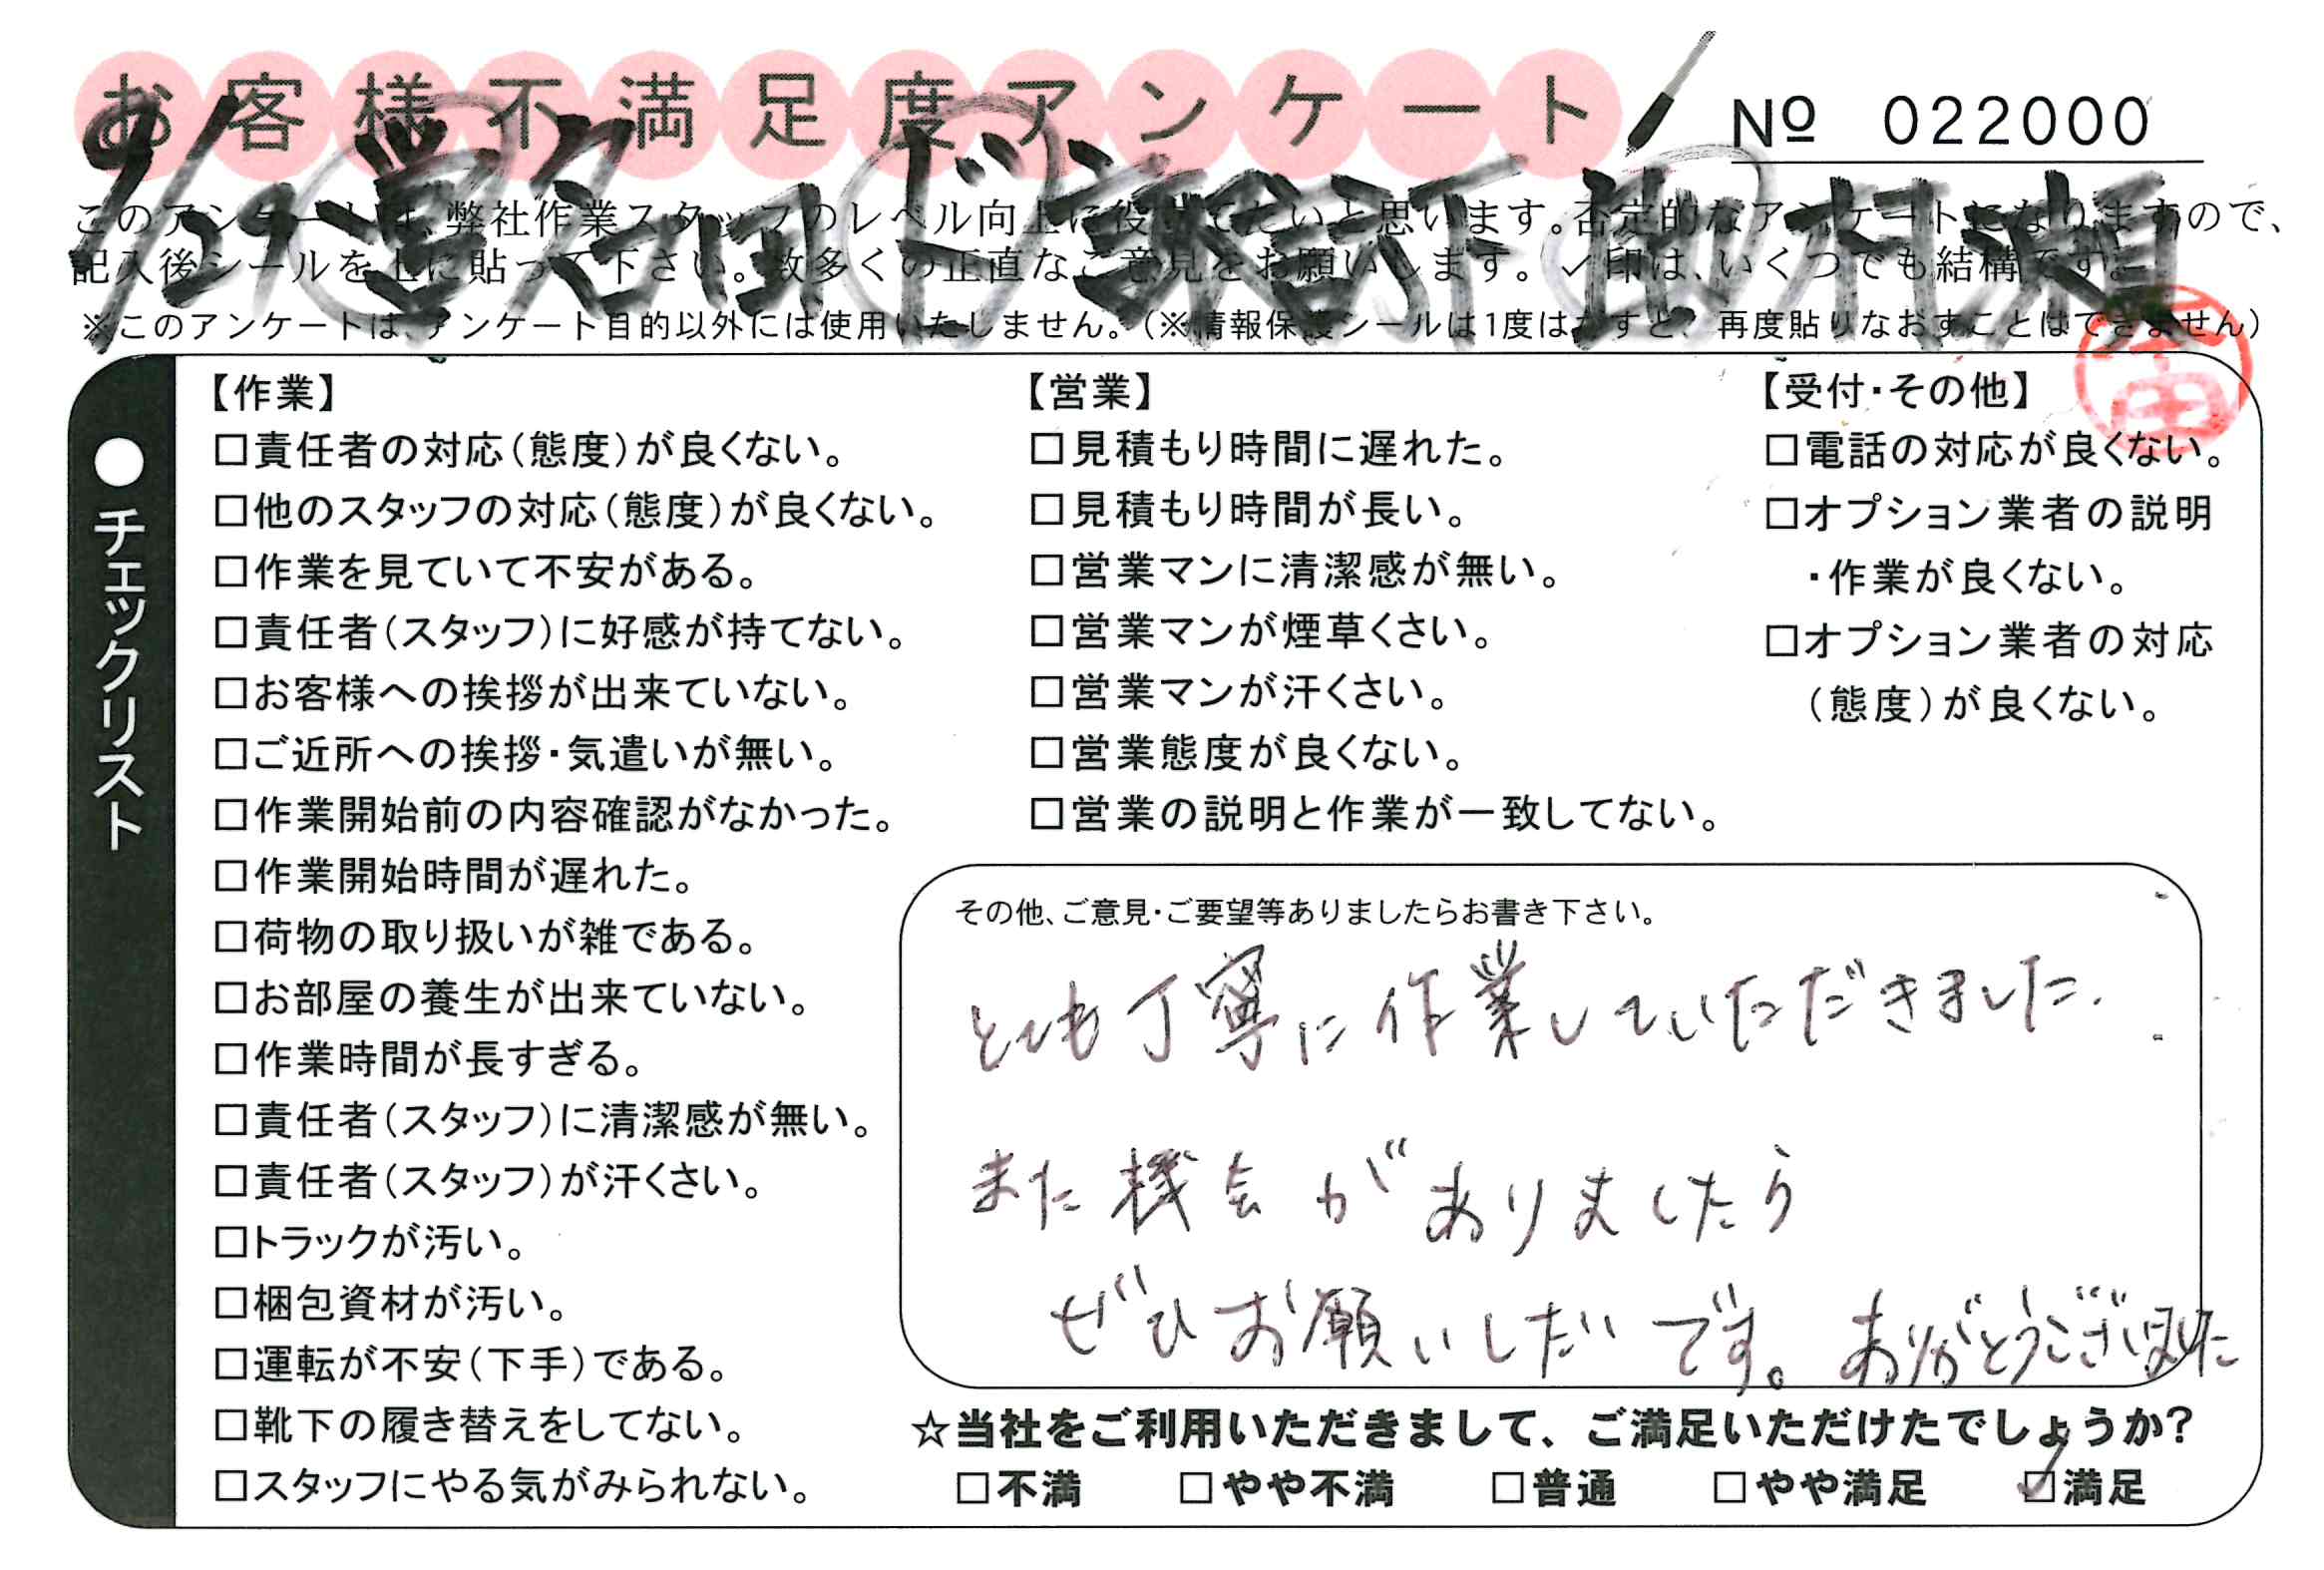 お客様不満足度アンケート
№ 022000
9/29 営 石田 ド 諏訪下 助 村瀬
このアンケートは、弊社作業スタッフのレベル向上に役立てたいと思います。否定的なアンケートになりますので、
記入後シールを上に貼って下さい。数多くの正直なご意見をお願いします。✓印は、いくつでも結構です。
※このアンケートは、アンケート目的以外には使用いたしません。（※情報保護シールは1度はがすと、再度貼りなおすことはできません）
●チェックリスト
【作業】
□責任者の対応（態度）が良くない。
□他のスタッフの対応（態度）が良くない。
□作業を見ていて不安がある。
□責任者（スタッフ）に好感が持てない。
□お客様への挨拶が出来ていない。
□ご近所への挨拶・気遣いが無い。
□作業開始前の内容確認がなかった。
□作業開始時間が遅れた。
□荷物の取り扱いが雑である。
□お部屋の養生が出来ていない。
□作業時間が長すぎる。
□責任者（スタッフ）に清潔感が無い。
□責任者（スタッフ）が汗くさい。
□トラックが汚い。
□梱包資材が汚い。
□運転が不安（下手）である。
□靴下の履き替えをしてない。
□スタッフにやる気がみられない。
【営業】
□見積もり時間に遅れた。
□見積もり時間が長い。
□営業マンに清潔感が無い。
□営業マンが煙草くさい。
□営業マンが汗くさい。
□営業態度が良くない。
□営業の説明と作業が一致してない。
【受付・その他】
□電話の対応が良くない。
□オプション業者の説明
・作業が良くない。
□オプション業者の対応
（態度）が良くない。
その他、ご意見・ご要望等ありましたらお書き下さい。
とても丁寧に作業していただきました.
また機会がありましたら
ぜひお願いしたいです。ありがとうございました
☆当社をご利用いただきまして、ご満足いただけたでしょうか?
□不満 □やや不満 □普通 □やや満足 ☑満足